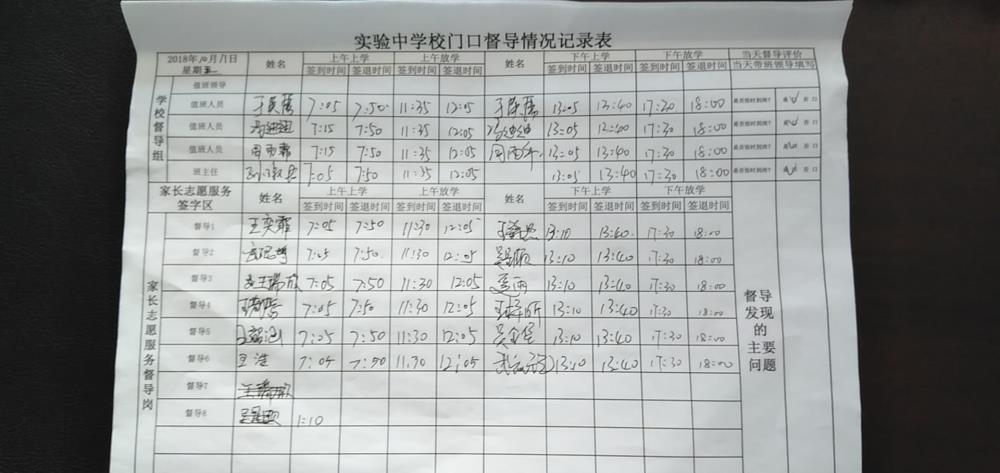 实验中学校门口督导情况记录表
2018年10月11日 姓名 上午上学 上午放学 姓名 下午上学 下午放学 当天督导评价
星期五 签到时间 签退时间 签到时间 签退时间 签到时间 签退时间 签到时间 签退时间 当天带班领导填写
学校督导组
值班领导
值班人员 7:05 7:50 11:35 12:05 13:05 13:40 17:30 18:00 是否按时到岗? 是 否 口
值班人员 7:15 7:50 11:35 12:05 13:05 12:40 17:30 18:00 是否按时到岗? 是 否 口
值班人员 7:15 7:50 11:35 12:05 13:05 13:40 17:30 18:00 是否按时到岗? 是 否 口
班主任 7:05 7:50 11:35 12:05 13:05 13:40 17:30 18:00 是否按时到岗? 是 否 口
家长志愿服务 姓名 上午上学 上午放学 下午上学 下午放学
签字区 签到时间 签退时间 签到时间 签退时间 签到时间 签退时间 签到时间 签退时间
家长志愿服务督导岗
督导1 王奕霏 7:05 7:50 11:30 12:05 13:10 13:40 17:30 18:00
督导2 7:05 7:50 11:30 12:05 13:10 13:40 17:30 18:00
督导3 7:05 7:50 11:30 12:05 13:10 13:40 17:30 18:00
督导4 7:05 7:50 11:30 12:05 13:10 13:40 17:30 18:00
督导5 7:05 7:50 11:30 12:05 13:10 13:40 17:30 18:00
督导6 王浩 7:05 7:50 11:30 12:05 13:10 13:40 17:30 18:00
督导7
督导8 1:10
督导
发现
的
主要
问题